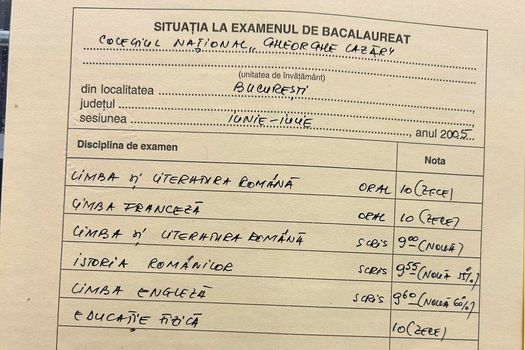 SITUAȚIA LA EXAMENUL DE BACALAUREAT
COLEGIUL NAȚIONAL „GHEORGHE LAZĂR"
(unitatea de învățământ)
din localitatea BUCUREȘTI
județul
sesiunea IUNIE-IULIE, anul 2005
Disciplina de examen Nota
LIMBA ȘI LITERATURA ROMÂNĂ ORAL 10 (ZECE)
LIMBA FRANCEZĂ ORAL 10 (ZECE)
LIMBA ȘI LITERATURA ROMÂNĂ SCRIS 9 00 (NOUĂ)
ISTORIA ROMÂNILOR SCRIS 9 55 (NOUĂ 55%)
LIMBA ENGLEZĂ SCRIS 9 60 (NOUĂ 60%)
EDUCAȚIE FIZICĂ 10 (ZECE)